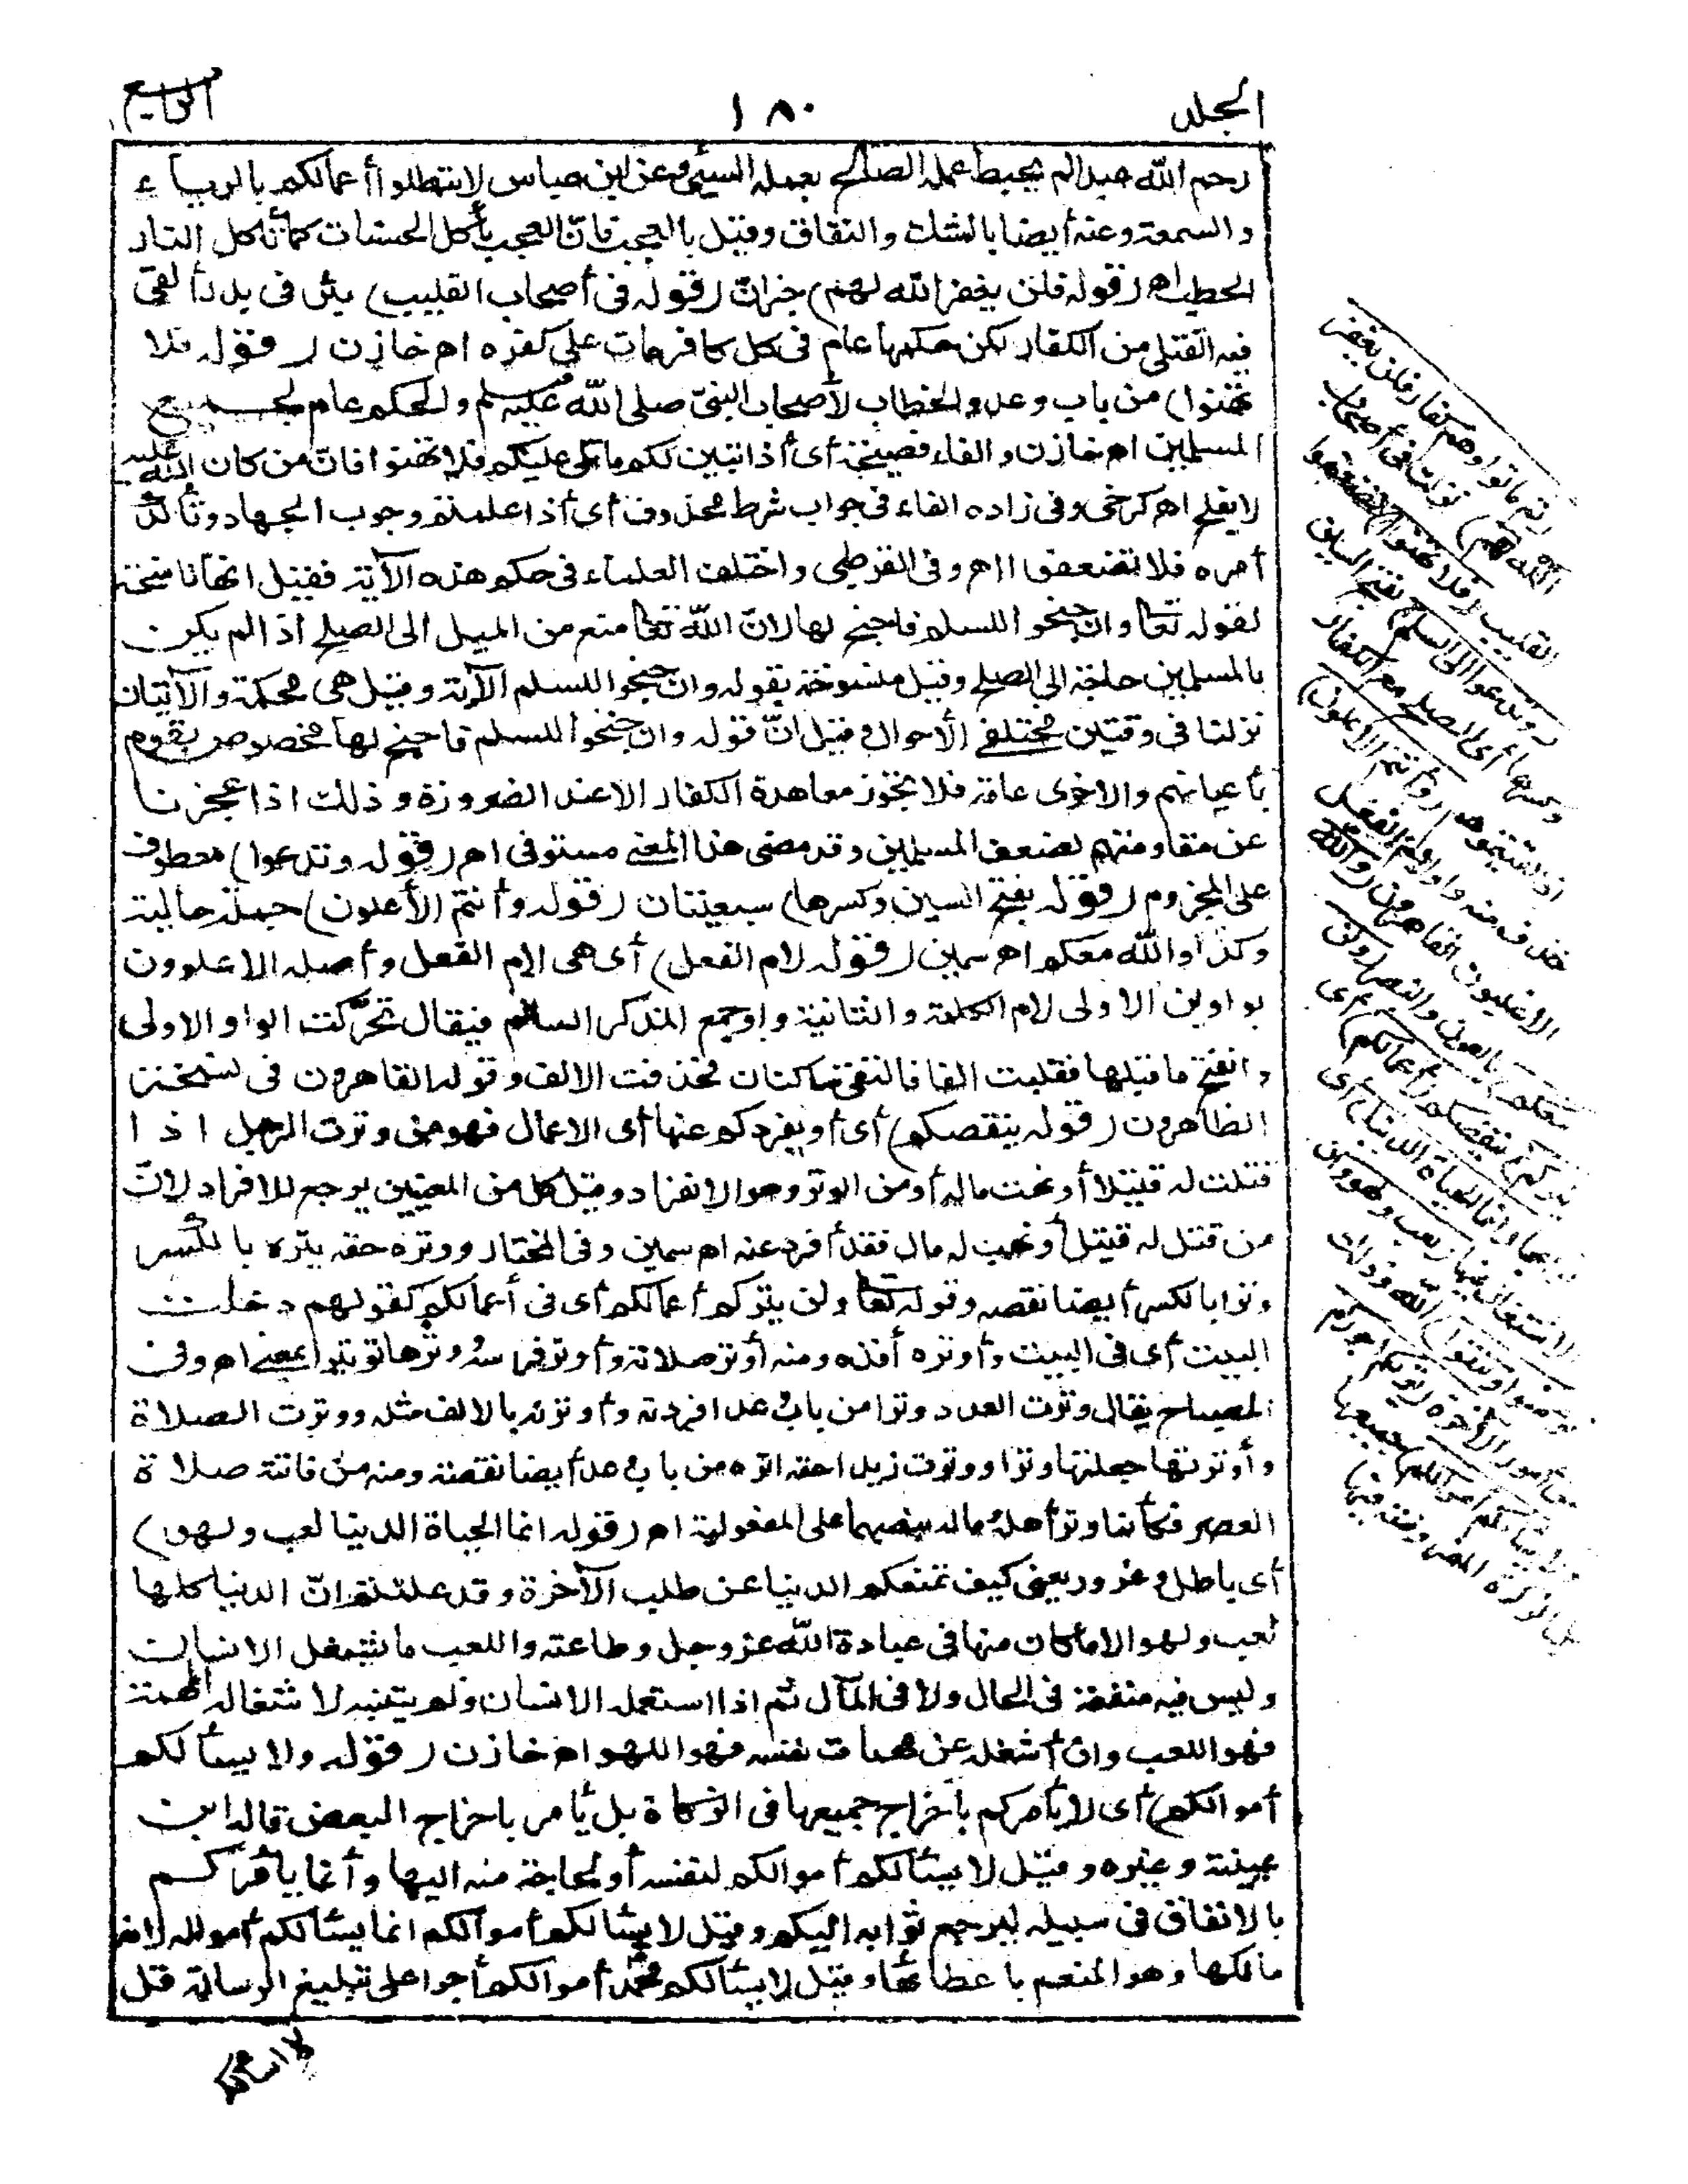 المجلد ١٨٠ الرابع
رحم الله عبدا لم يحبط عمله الصالح بعمله السيئ وعن ابن عباس لا تبطلوا أعمالكم بالرياء
والسمعة وعنه أيضا بالشك والنفاق وقيل بالعجب فانّ العجب يأكل الحسنات كما تأكل النار
الحطب اهـ (قوله فلن يغفر الله لهم) خبر انّ (قوله فى أصحاب القليب) بئر فى بدر ألقى
فيه القتلى من الكفار لكن حكمها عام فى كل كافر مات على كفره اهـ خازن (قوله فلا
تهنوا) من باب وعد والخطاب لأصحاب النبىّ صلى الله عليه وسلم والحكم عام لجميع
المسلمين اهـ خازن والفاء فصيحة أى أذا تبين لكم ما تلى عليكم فلا تهنوا فان من كان الله عليه
لا يفلح اهـ كرخى وفى زاده الفاء فى جواب شرط محذوف أى أذا علمتم وجوب الجهاد وتأكد
أمره فلا تضعفوا اهـ وفى القرطبى واختلف العلماء فى حكم هذه الآية فقيل انها ناسخة
لقوله تعا وان جنحوا للسلم فاجنح لها لانّ الله تعا منع من الميل الى الصلح أذا لم يكن
بالمسلمين حاجة الى الصلح وقيل منسوخة بقوله وان جنحوا للسلم الآية وقيل هى محكمة والآيتان
نزلتا فى وقتين مختلفى الأحوال وقيل انّ قوله وان جنحوا للسلم فاجنح لها مخصوص بقوم
بأعيانهم والاخرى عامة فلا يجوز معاهدة الكفار الا عند الضرورة وذلك اذا عجزنا
عن مقاومتهم لضعف المسلمين وقد مضى هذا المعنى مستوفى اهـ (قوله وتدعوا) معطوف
على المجزوم (قوله بفتح السين وكسرها) سبعيتان (قوله وأنتم الأعلون) جملة حالية
وكذا والله معكم اهـ سمين (قوله لام الفعل) أى هى لام الفعل وأصله الاعلوون
بواوين الاولى لام الكلمة والثانية واو جمع المذكر السالم فيقال تحرّكت الواو الاولى
وانفتح ما قبلها فقلبت الفا فالتقى ساكنان فحذفت الالف وقوله القاهرون فى نسخة
الظاهرون (قوله ينقصكم) أى أو يفردكم عنها أى الاعمال فهو من وترت الرجل اذا
قتلت له قتيلا أو نهبت ماله أو من الوتر وهو الانفراد وقيل كل من المعنيين يرجع للافراد لانّ
من قتل له قتيل أو نهب له مال فقد أفرد عنه اهـ سمين وفى المختار ووتره حقه يتره بالكسر
وترا بالكسر أيضا نقصه وقوله تعا ولن يتركم أعمالكم أى فى أعمالكم كقولهم دخلت
البيت أى فى البيت وأوتره أفذه ومنه أوتر صلاته وأوتر قوسه ووترها توتيرا بمعنى اهـ وفى
المصباح يقال وترت العدد وترا من باب وعد افردته وأوترته بالالف مثله ووترت الصلاة
وأوترتها جعلتها وترا ووترت زيدا حقه اتره من باب وعد أيضا نقصته ومنه من فاتته صلاة
العصر فكأنما وتر أهله وماله بنصبهما على المفعولية اهـ (قوله انما الحياة الدنيا لعب ولهو)
أى باطل وغرور يعنى كيف تمنعكم الدنيا عن طلب الآخرة وقد علمتم انّ الدنيا كلها
لعب ولهو الا ما كان منها فى عبادة الله عز وجل وطاعته واللعب ما يشغل الانسان
وليس فيه منفعة فى الحال ولا فى المآل ثم اذا استعمله الانسان ولم يتنبه لاشتغاله المهمة
فهو اللعب وان أشغله عن مهمات نفسه فهو اللهو اهـ خازن (قوله ولا يسألكم
أموالكم) أى لا يأمركم بأخراج جميعها فى الزكاة بل يأمر باخراج البعض قاله ابن
عيينة وغيره وقيل لا يسألكم أموالكم لنفسه أو لحاجة منه اليها وأنما يأمركم
بالانفاق فى سبيله ليرجع ثوابه اليكم وقيل لا يسألكم أموالكم انما يسألكم أمواله لانه
مالكها وهو المنعم باعطائها وقيل لا يسألكم محمد أموالكم أجرا على تبليغ الرسالة قل
لا اسألكم
ثم ماتوا وهم كفار فلن يغفر
الله لهم) نزلت فى أصحاب
القليب (فلا تهنوا) تضعفوا
(وتدعوا الى السلم) بفتح السين
وكسرها أى الصلح مع الكفار
اذا لقيتموهم (وأنتم الاعلون)
حذف منه واو لام الفعل
الاغلبون القاهرون (والله
معكم) بالعون والنصر (ولن
يتركم) ينقصكم (أعمالكم) أى
ثوابها (انما الحياة الدنيا) أى
الاشتغال فيها (لعب ولهو وان
تؤمنوا وتتقوا) الله وذلك
من أمور الآخرة (يؤتكم أجوركم
ولا يسألكم أموالكم) جميعها
بل الزكاة المفروضة فيها